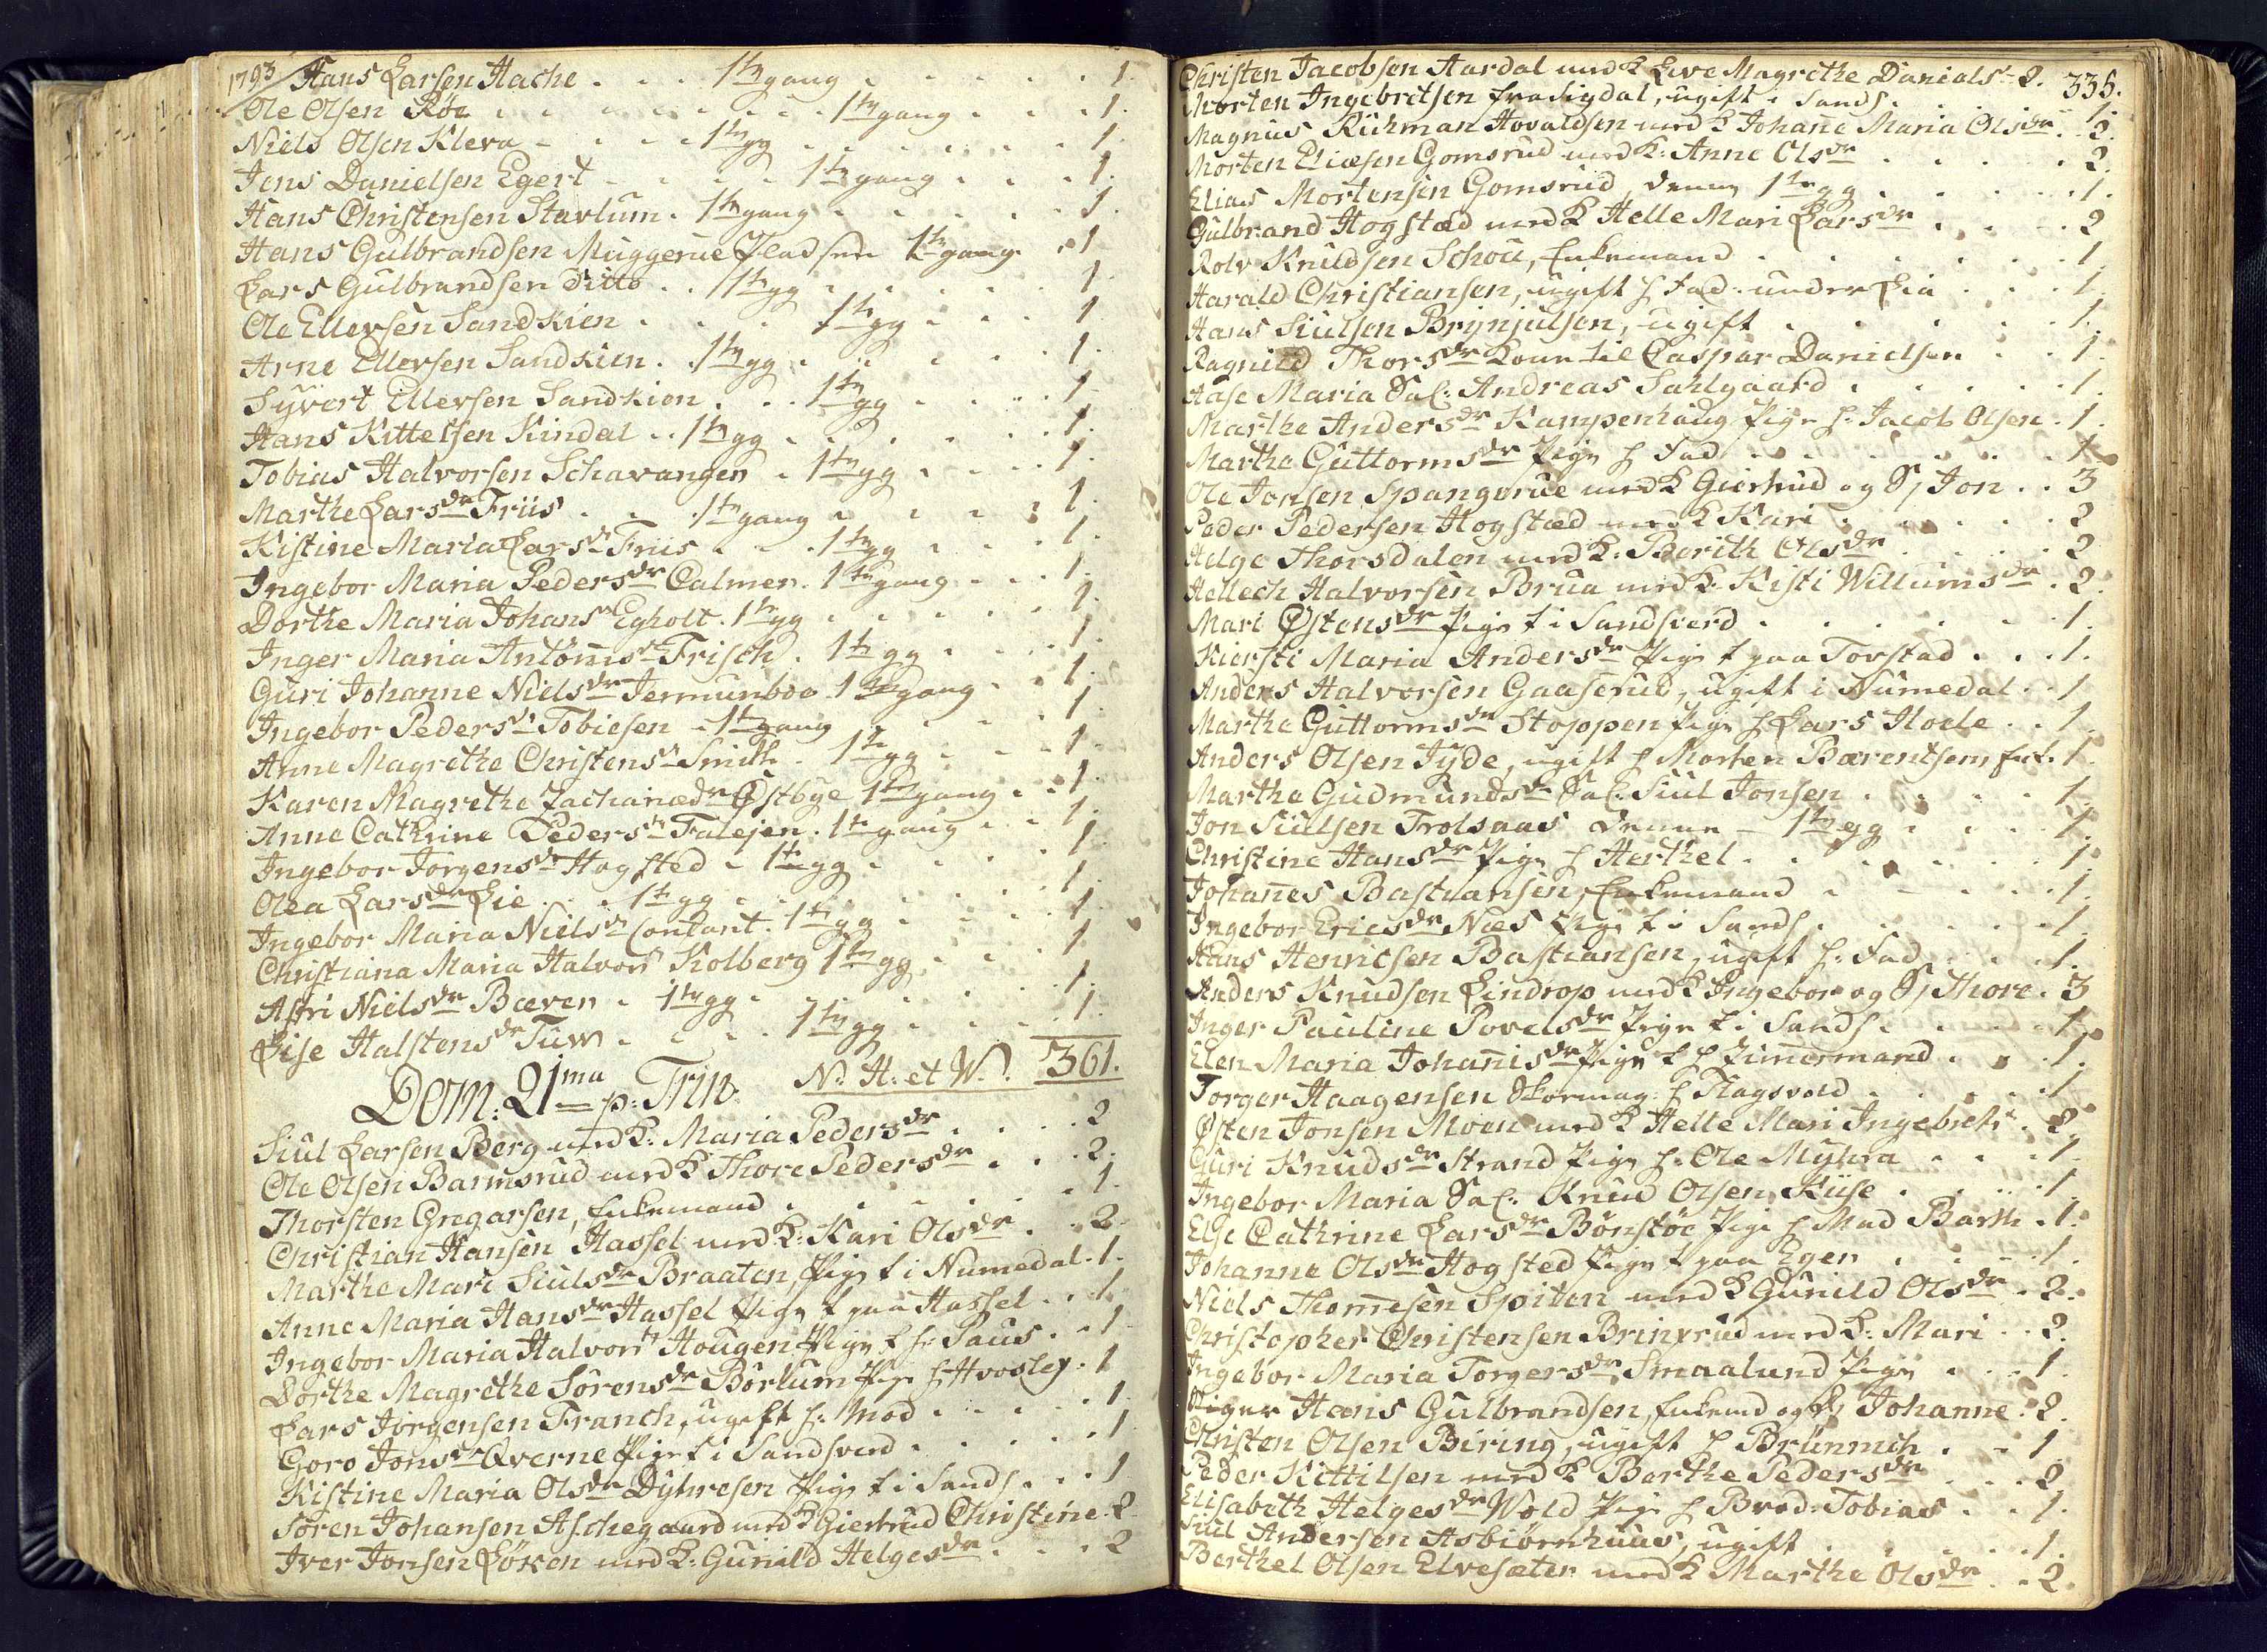 1793 Hans Larsen Hache . . . 1ste gang . . . . . 1.
Ole Olsen Röe . . . . . . . 1ste gang . . . 1.
Niels Olsen Kleva . . . . 1ste gg . . . . . . 1.
Jens Danielsen Egert . . . . 1ste gang . . . 1.
Hans Christensen Stavlum . 1ste gang . . . . . 1.
Hans Gulbrandsen Muggerue Pladsen 1ste gang . 1
Lars Gulbrandsen Ditto . . 1ste gg . . . . . 1.
Ole Ellevsen Sandkien . . . . 1ste gg . . . 1
Arne Ellevsen Sandkien . 1ste gg . . . . . 1.
Syvert Ellevsen Sandkien . . . 1ste gg . . . . 1
Hans Kittelsen Kindal . . 1ste gg . . . . . . 1.
Tobias Halvorsen Schavangen . 1ste gg . . . . 1.
Marthe Larsdr Friis . . . 1ste gang . . . . . 1.
Kistine Maria Larsdr Friis . . . 1ste gg . . . . 1.
Ingebor Maria Pedersdr Calmer . 1ste gang . . . 1.
Dorthe Maria Johansdr Egholt . 1ste gg . . . . . 1.
Inger Maria Antönnisdr Frisch . 1ste gg . . . . 1.
Guri Johanne Nielsdr Jermunboe . 1ste gang . . 1.
Ingebor Pedersdr Tobiesen . 1ste gang . . . . 1.
Anne Magrethe Christensdr Smith . 1ste gg . . . 1.
Karen Magrethe Zachariædr Østbye 1ste gang . . 1.
Anne Cathrine Pedersdr Falejen . 1ste gang . . 1.
Ingebor Jorgensdr Hogsted . 1ste gg . . . . . 1
Olea Larsdr Lie . . . 1ste gg . . . . . . 1.
Ingebor Maria Nielsdr Contant . 1ste gg . . . . 1.
Christiana Maria Halvorsdr Kolberg 1ste gg . . . 1
Astri Nielsdr Bæver . 1ste gg . . . . . . . 1.
Lise Halstensdr Tuw . . . . 1ste gg . . . . . 1.
Dom: 21ma p: Trin. N. H. et W. 361.
Siul Larsen Berg med K: Maria Pedersdr . . . . 2
Ole Olsen Barmsrud med K Thore Pedersdr . . . 2.
Thorsten Gregarsen, Enkemand . . . . . . . 1.
Christian Hansen Hassel med K: Kari Olsdr . . 2
Marthe Mari Siulsdr Braaten, Pige t i Numedal . 1.
Anne Maria Hansdr Hassel Pige t paa Hassel . . 1
Ingebor Maria Halvorsdr Hougen Pige t h: Paus . . 1
Dorthe Magrethe Sörensdr Börlum Pige h: Hvosley . 1
Lars Jörgensen Franch, ugift h: Mod . . . . . 1
Goro Jonsdr Qverne Pige t i Sandsverd . . . . . 1
Kistine Maria Olsdr Dyhresen Pige t i Sands . . . 1
Sören Johansen Aschegaard med K Giertrud Christine . 2
Iver Jonsen Löken med K: Gunild Helgesdr . . . 2
Christen Jacobsen Aardal med K Live Magrethe Danielsdr 2. 335.
Morten Ingebretsen fra Sigdal, ugift i Sands . . . . 1.
Magnus Richman Hovaldsen med K Johanne Maria Olsdr . 2.
Morten Eliæsen Gomsrud med K: Anne Olsdr . . . . . 2.
Elias Mortensen Gomsrud, denne 1ste gg . . . . . 1.
Gulbrand Hogstad med K Helle Mari Larsdr . . . . . 2
Rolv Knudsen Schou, Enkemand . . . . . . . 1.
Harald Christiansen, ugift h Fad. under Lia . . . 1.
Hans Siulsen Brynjulsen, ugift . . . . . . 1.
Ragnild Thorsdr Kone til Caspar Danielsen . . 1.
Aase Maria Sal: Andreas Sahlgaard . . . . . 1.
Marthe Andersdr Kampenhaug Pige h: Jacob Olsen . 1.
Marthe Guttormsdr Pige h Fad . . . . . . . 1.
Ole Jonsen Spangerue med K Giertrud og S, Jon . . 3
Peder Pedersen Hogstæd med K Kari . . . . . . 2
Helge Thorsdalen med K: Berith Olsdr . . . . . 2
Hellech Halvorsen Brua med K: Kisti Willumsdr . 2.
Mari Østensdr Pige t i Sandsverd . . . . . . 1.
Kiersti Maria Andersdr Pige t paa Torstad . . . 1.
Anders Halvorsen Gaaserud, ugift i Numedal . . 1
Marthe Guttormsdr Stoppen Pige h Lars Hoele . . 1
Anders Olsen Tyde, ugift h Morten Bærentsens Enk. 1.
Marthe Gudmundsdr Sal. Siul Jonsen . . . . . 1.
Jon Siulsen Trolsaas denne – 1ste gg . . . . 1.
Christine Hansdr Pige h Herthel . . . . . . 1.
Johannes Bastiansen, Enkemand . . . . . . 1.
Ingebor Ericsdr Næs Pige t i Sands . . . . . 1.
Hans Henricsen Bastiansen, ugift h: Fad . . . 1.
Anders Knudsen Lindrop med K Ingebor og S, Thore . 3
Inger Pauline Povelsdr Pige t i Sands . . . . . 1.
Elen Maria Johannisdr Pige t h Zimermand . . . 1.
Torger Haagensen Skomag: h Flagsvold . . . . 1
Østen Jonsen Moen med K Helle Mari Ingebrets . 2.
Guri Knudsdr Strand Pige h: Ole Myhra . . . 1.
Ingebor Maria Sal: Knud Olsen Kiise . . . . 1.
Else Cathrine Larsdr Bønstöe Pige h Mad Barth . 1.
Johanne Olsdr Hogsted Pige t paa Eger . . . . 1.
Niels Thomesen Spiten med K Gunild Olsdr . 2.
Christopher Christensen Brinxrud med K: Mari . . 2.
Ingebor Maria Torgersdr Smaalund Pige . . . 1.
Hans Gulbrandsen, Enkemd og D, Johanne . 2.
Christen Olsen Biring, ugift h Brünnich . . 1
Peder Kittilsen med K Berthe Pedersdr . . . 2
Elisabeth Helgesdr Wold Pige h Brod: Tobias . . 1.
Siul Andersen Asbiörnhuus, ugift . . . . . . 1.
Berthel Olsen Elvesæter med K Marthe Olsdr . . 2.